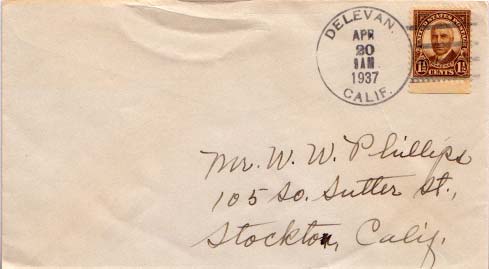 DELEVAN.
APR
20
9AM
1937
CALIF.
UNITED STATES POSTAGE
1½ 1½
CENTS
Mr. W. W. Phillips
105 So. Sutter St.,
Stockton, Calif.